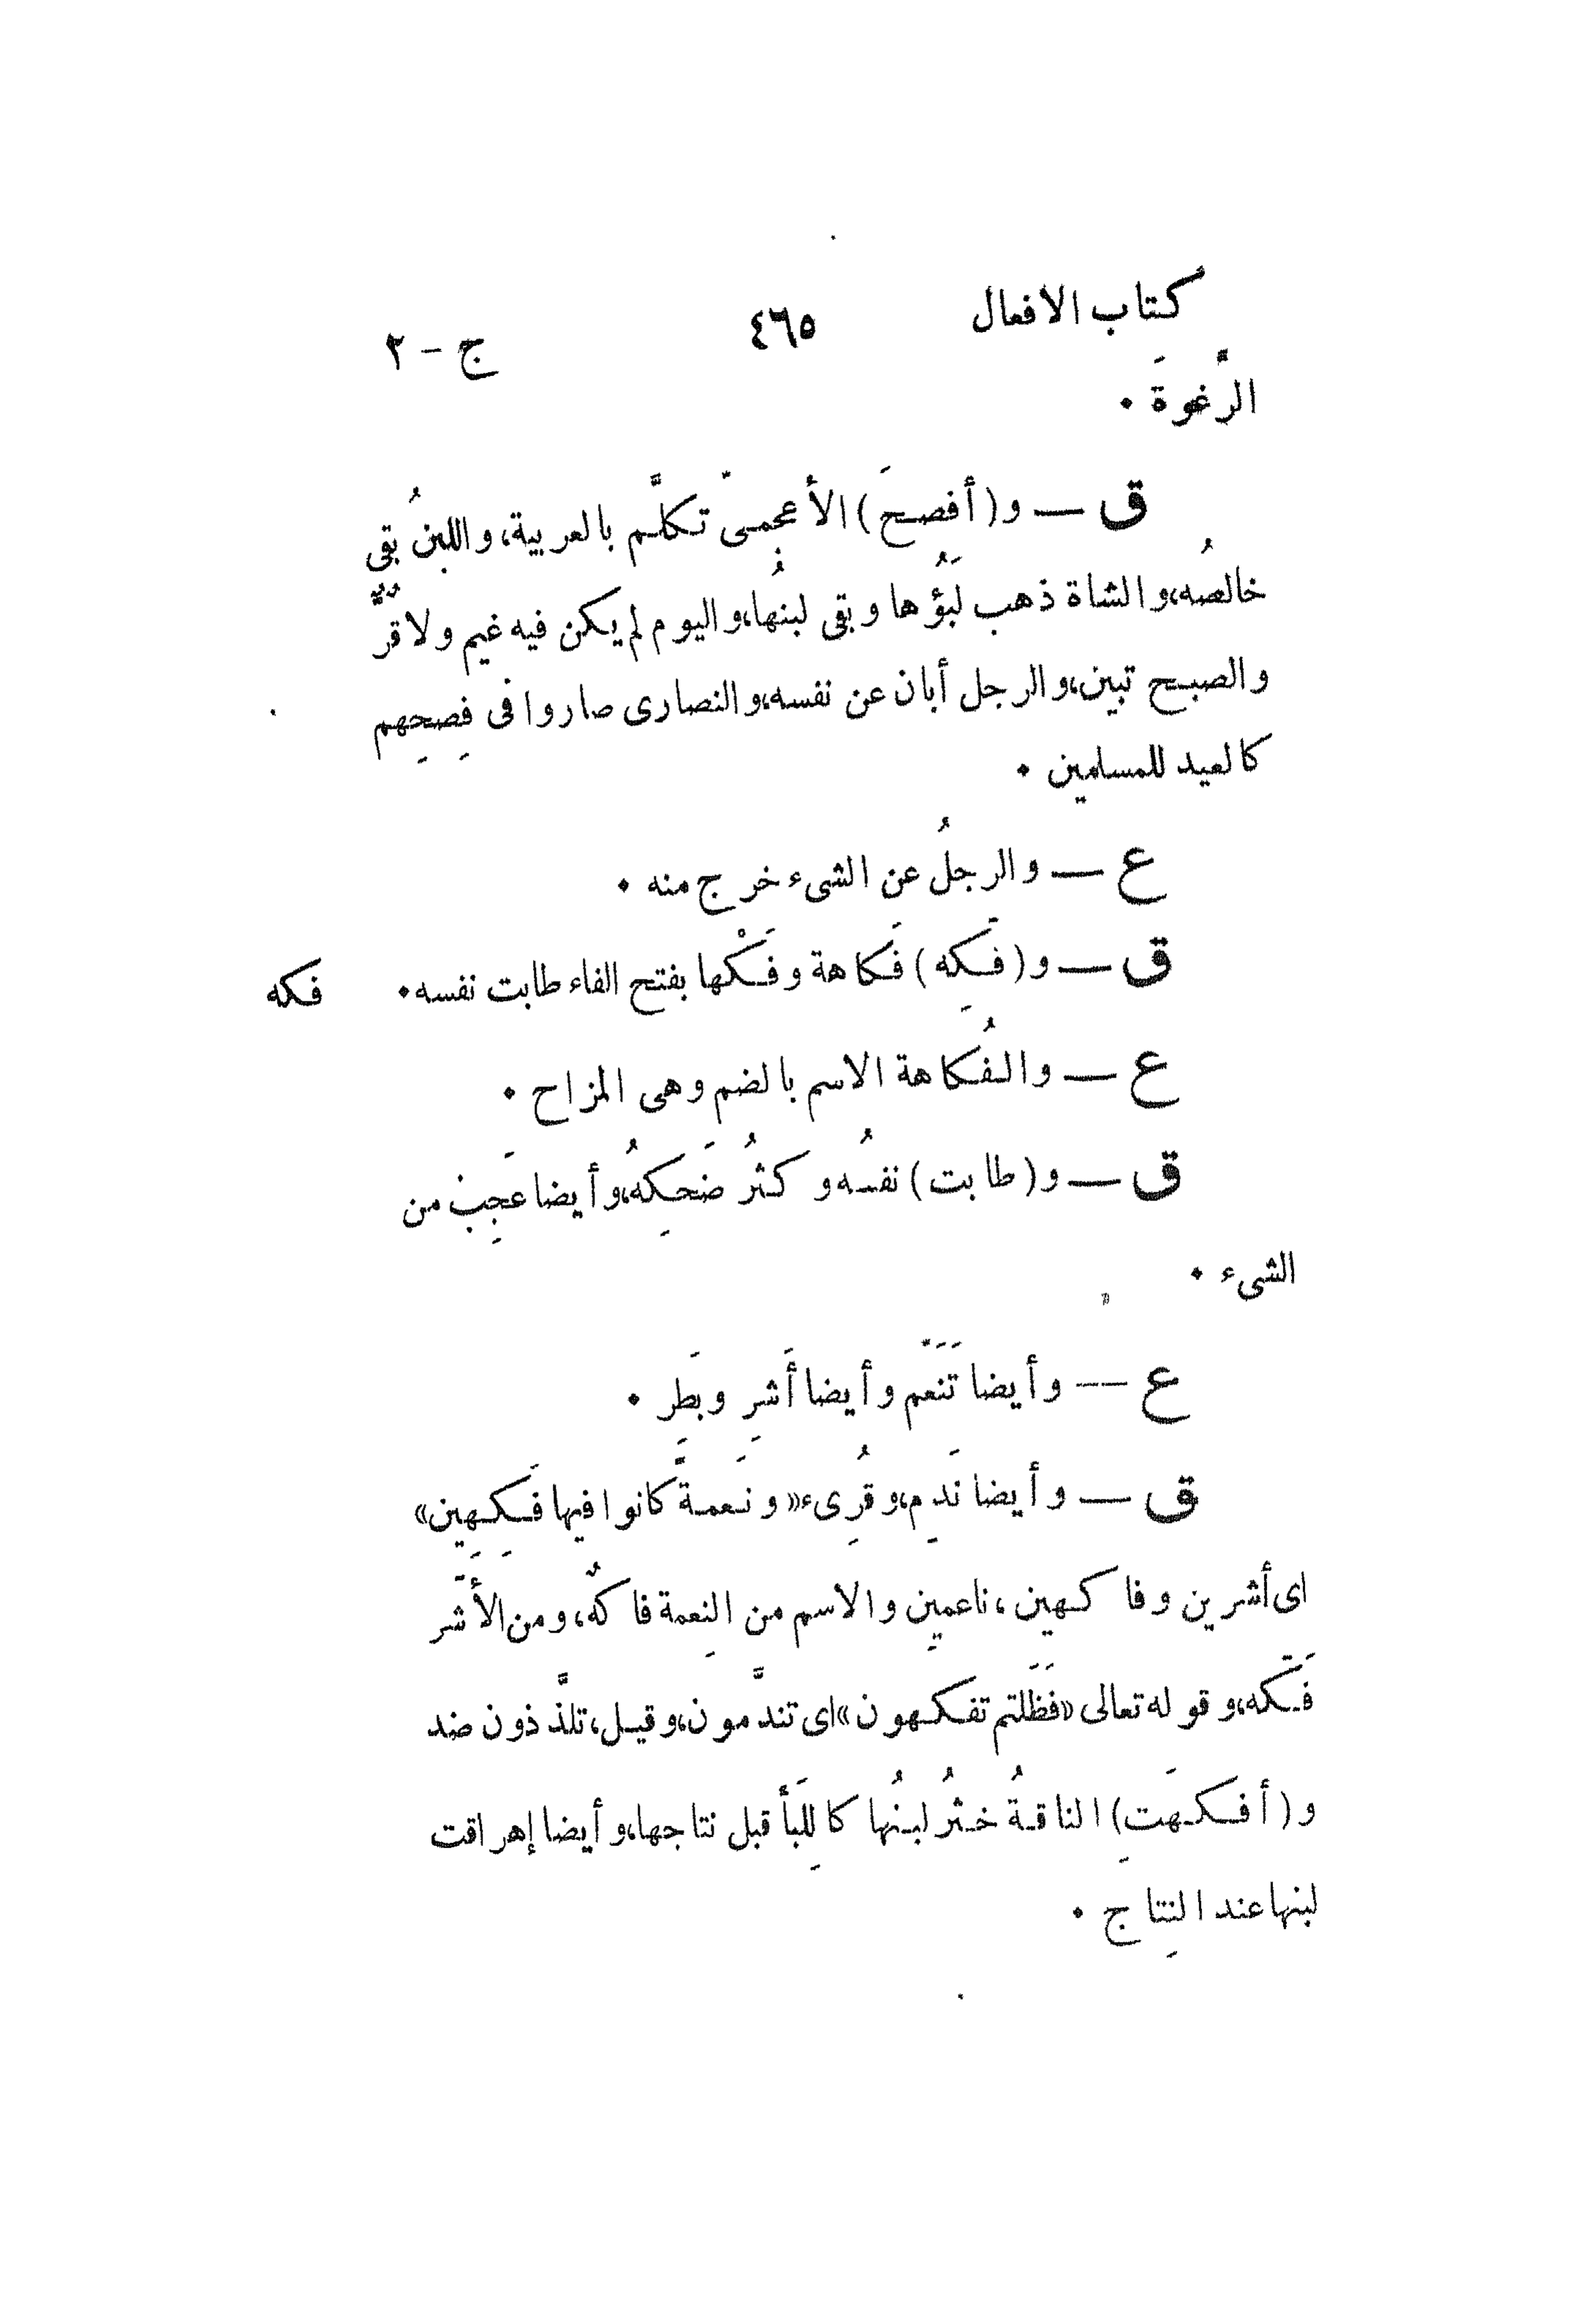 كتاب الافعال ٤٦٥ ج - ٢
الرَّغوَة •
ق — و (أفصحَ) الأعجمىّ تكلَّم بالعربية، واللبنُ بقى
خالصُه، والشاة ذهب لَبَؤُها وبقى لبنُها، واليوم لم يكن فيه غيم ولا قُرٌّ
والصبح تبين، والرجل أبان عن نفسه، والنصارى صاروا فى فِصحِهم
كالعيد للمسلمين •
ع — والرجلُ عن الشىء خرج منه •
ق — و (فَكِه) فَكاهة وفَكْها بفتح الفاء طابت نفسه • فكه
ع — والفُكاهة الاسم بالضم وهى المزاح •
ق — و (طابت) نفسُه وكثرُ ضَحِكهُ، وأيضا عَجِب من
الشىء •
ع — وأيضا تَنَعّم وأيضا أَشرِ وبَطِر •
ق — وأيضا نَدِم، وقُرِىء «ونَعمةَّ كانوا فيها فَكِهِين»
اى أشرين وفاكهين، ناعمين والاسم من النِعمة فاكهٌ، ومن الأَشّر
فَكّه، وقوله تعالى «فَظَلتم تفكهون» اى تندَّمون، وقيل، تلذَّذون ضد
و (أفكهَتِ) الناقةُ خثُر لبنُها كاللِبَأ قبل نتاجها، وأيضا إهراقت
لبنها عند النِتاج •